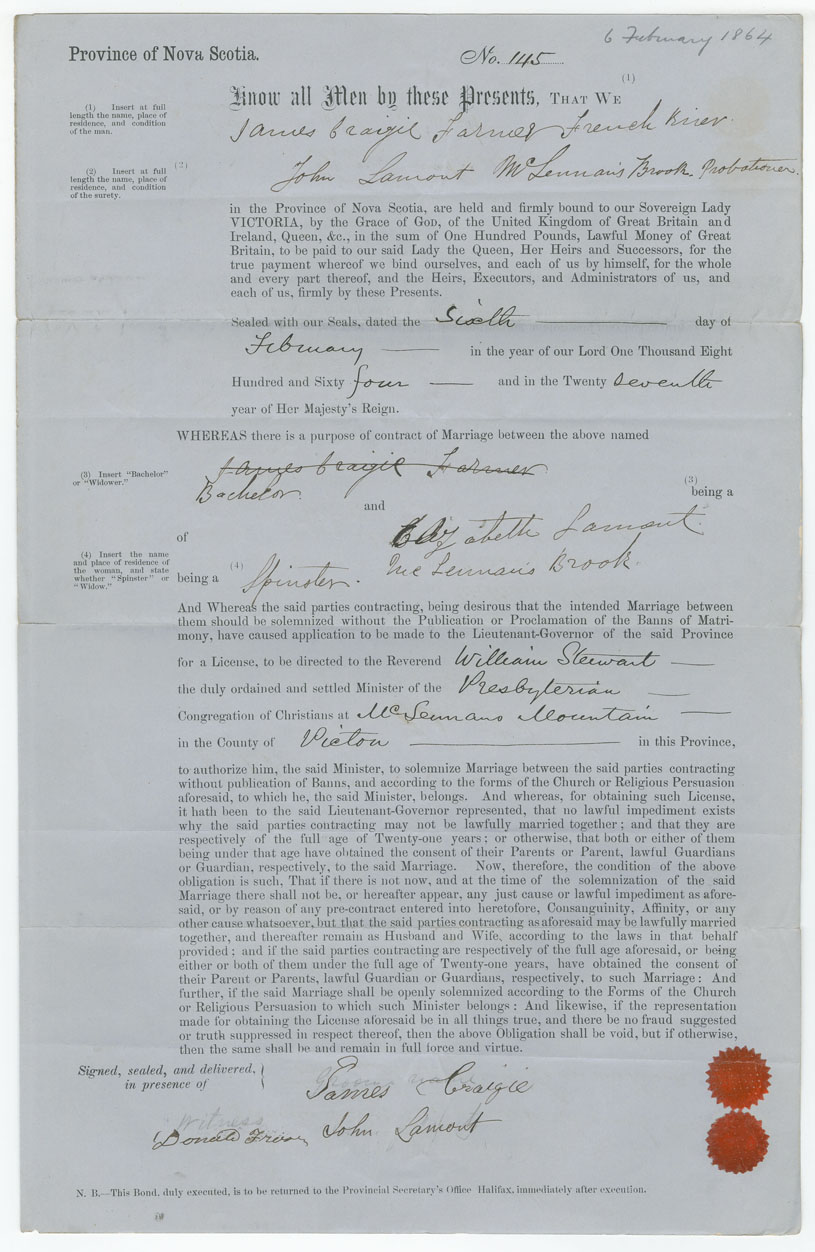 6 February 1864
Province of Nova Scotia.
No. 145
(1)
Know all Men by these Presents, THAT WE
(1) Insert at full length the name, place of residence, and condition of the man.
James Craigie Farmer French River
(2)
(2) Insert at full length the name, place of residence, and condition of the surety.
John Lamont McLennan's Brook. Probationer.
in the Province of Nova Scotia, are held and firmly bound to our Sovereign Lady
VICTORIA, by the Grace of GOD, of the United Kingdom of Great Britain and
Ireland, Queen, &c., in the sum of One Hundred Pounds, Lawful Money of Great
Britain, to be paid to our said Lady the Queen, Her Heirs and Successors, for the
true payment whereof we bind ourselves, and each of us by himself, for the whole
and every part thereof, and the Heirs, Executors, and Administrators of us, and
each of us, firmly by these Presents.
Sealed with our Seals, dated the Sixth day of
February in the year of our Lord One Thousand Eight
Hundred and Sixty four and in the Twenty seventh
year of Her Majesty's Reign.
WHEREAS there is a purpose of contract of Marriage between the above named
James Craigie Farmer
(3) Insert "Bachelor" or "Widower."
Bachelor.
(3)
being a
and
of Elizabeth Lamont.
(4) Insert the name and place of residence of the woman, and state whether "Spinster" or "Widow."
(4)
being a Spinster. McLennan's Brook.
And Whereas the said parties contracting, being desirous that the intended Marriage between
them should be solemnized without the Publication or Proclamation of the Banns of Matri-
mony, have caused application to be made to the Lieutenant-Governor of the said Province
for a License, to be directed to the Reverend William Stewart
the duly ordained and settled Minister of the Presbyterian
Congregation of Christians at McLennans Mountain
in the County of Pictou in this Province,
to authorize him, the said Minister, to solemnize Marriage between the said parties contracting
without publication of Banns, and according to the forms of the Church or Religious Persuasion
aforesaid, to which he, the said Minister, belongs. And whereas, for obtaining such License,
it hath been to the said Lieutenant-Governor represented, that no lawful impediment exists
why the said parties contracting may not be lawfully married together; and that they are
respectively of the full age of Twenty-one years; or otherwise, that both or either of them
being under that age have obtained the consent of their Parents or Parent, lawful Guardians
or Guardian, respectively, to the said Marriage. Now, therefore, the condition of the above
obligation is such, That if there is not now, and at the time of the solemnization of the said
Marriage there shall not be, or hereafter appear, any just cause or lawful impediment as afore-
said, or by reason of any pre-contract entered into heretofore, Consanguinity, Affinity, or any
other cause whatsoever, but that the said parties contracting as aforesaid may be lawfully married
together, and thereafter remain as Husband and Wife, according to the laws in that behalf
provided; and if the said parties contracting are respectively of the full age aforesaid, or being
either or both of them under the full age of Twenty-one years, have obtained the consent of
their Parent or Parents, lawful Guardian or Guardians, respectively, to such Marriage: And
further, if the said Marriage shall be openly solemnized according to the Forms of the Church
or Religious Persuasion to which such Minister belongs: And likewise, if the representation
made for obtaining the License aforesaid be in all things true, and there be no fraud suggested
or truth suppressed in respect thereof, then the above Obligation shall be void, but if otherwise,
then the same shall be and remain in full force and virtue.
Signed, sealed, and delivered,
in presence of
James Craigie
Witness
Donald Fraser John Lamont
N. B.—This Bond, duly executed, is to be returned to the Provincial Secretary's Office Halifax, immediately after execution.